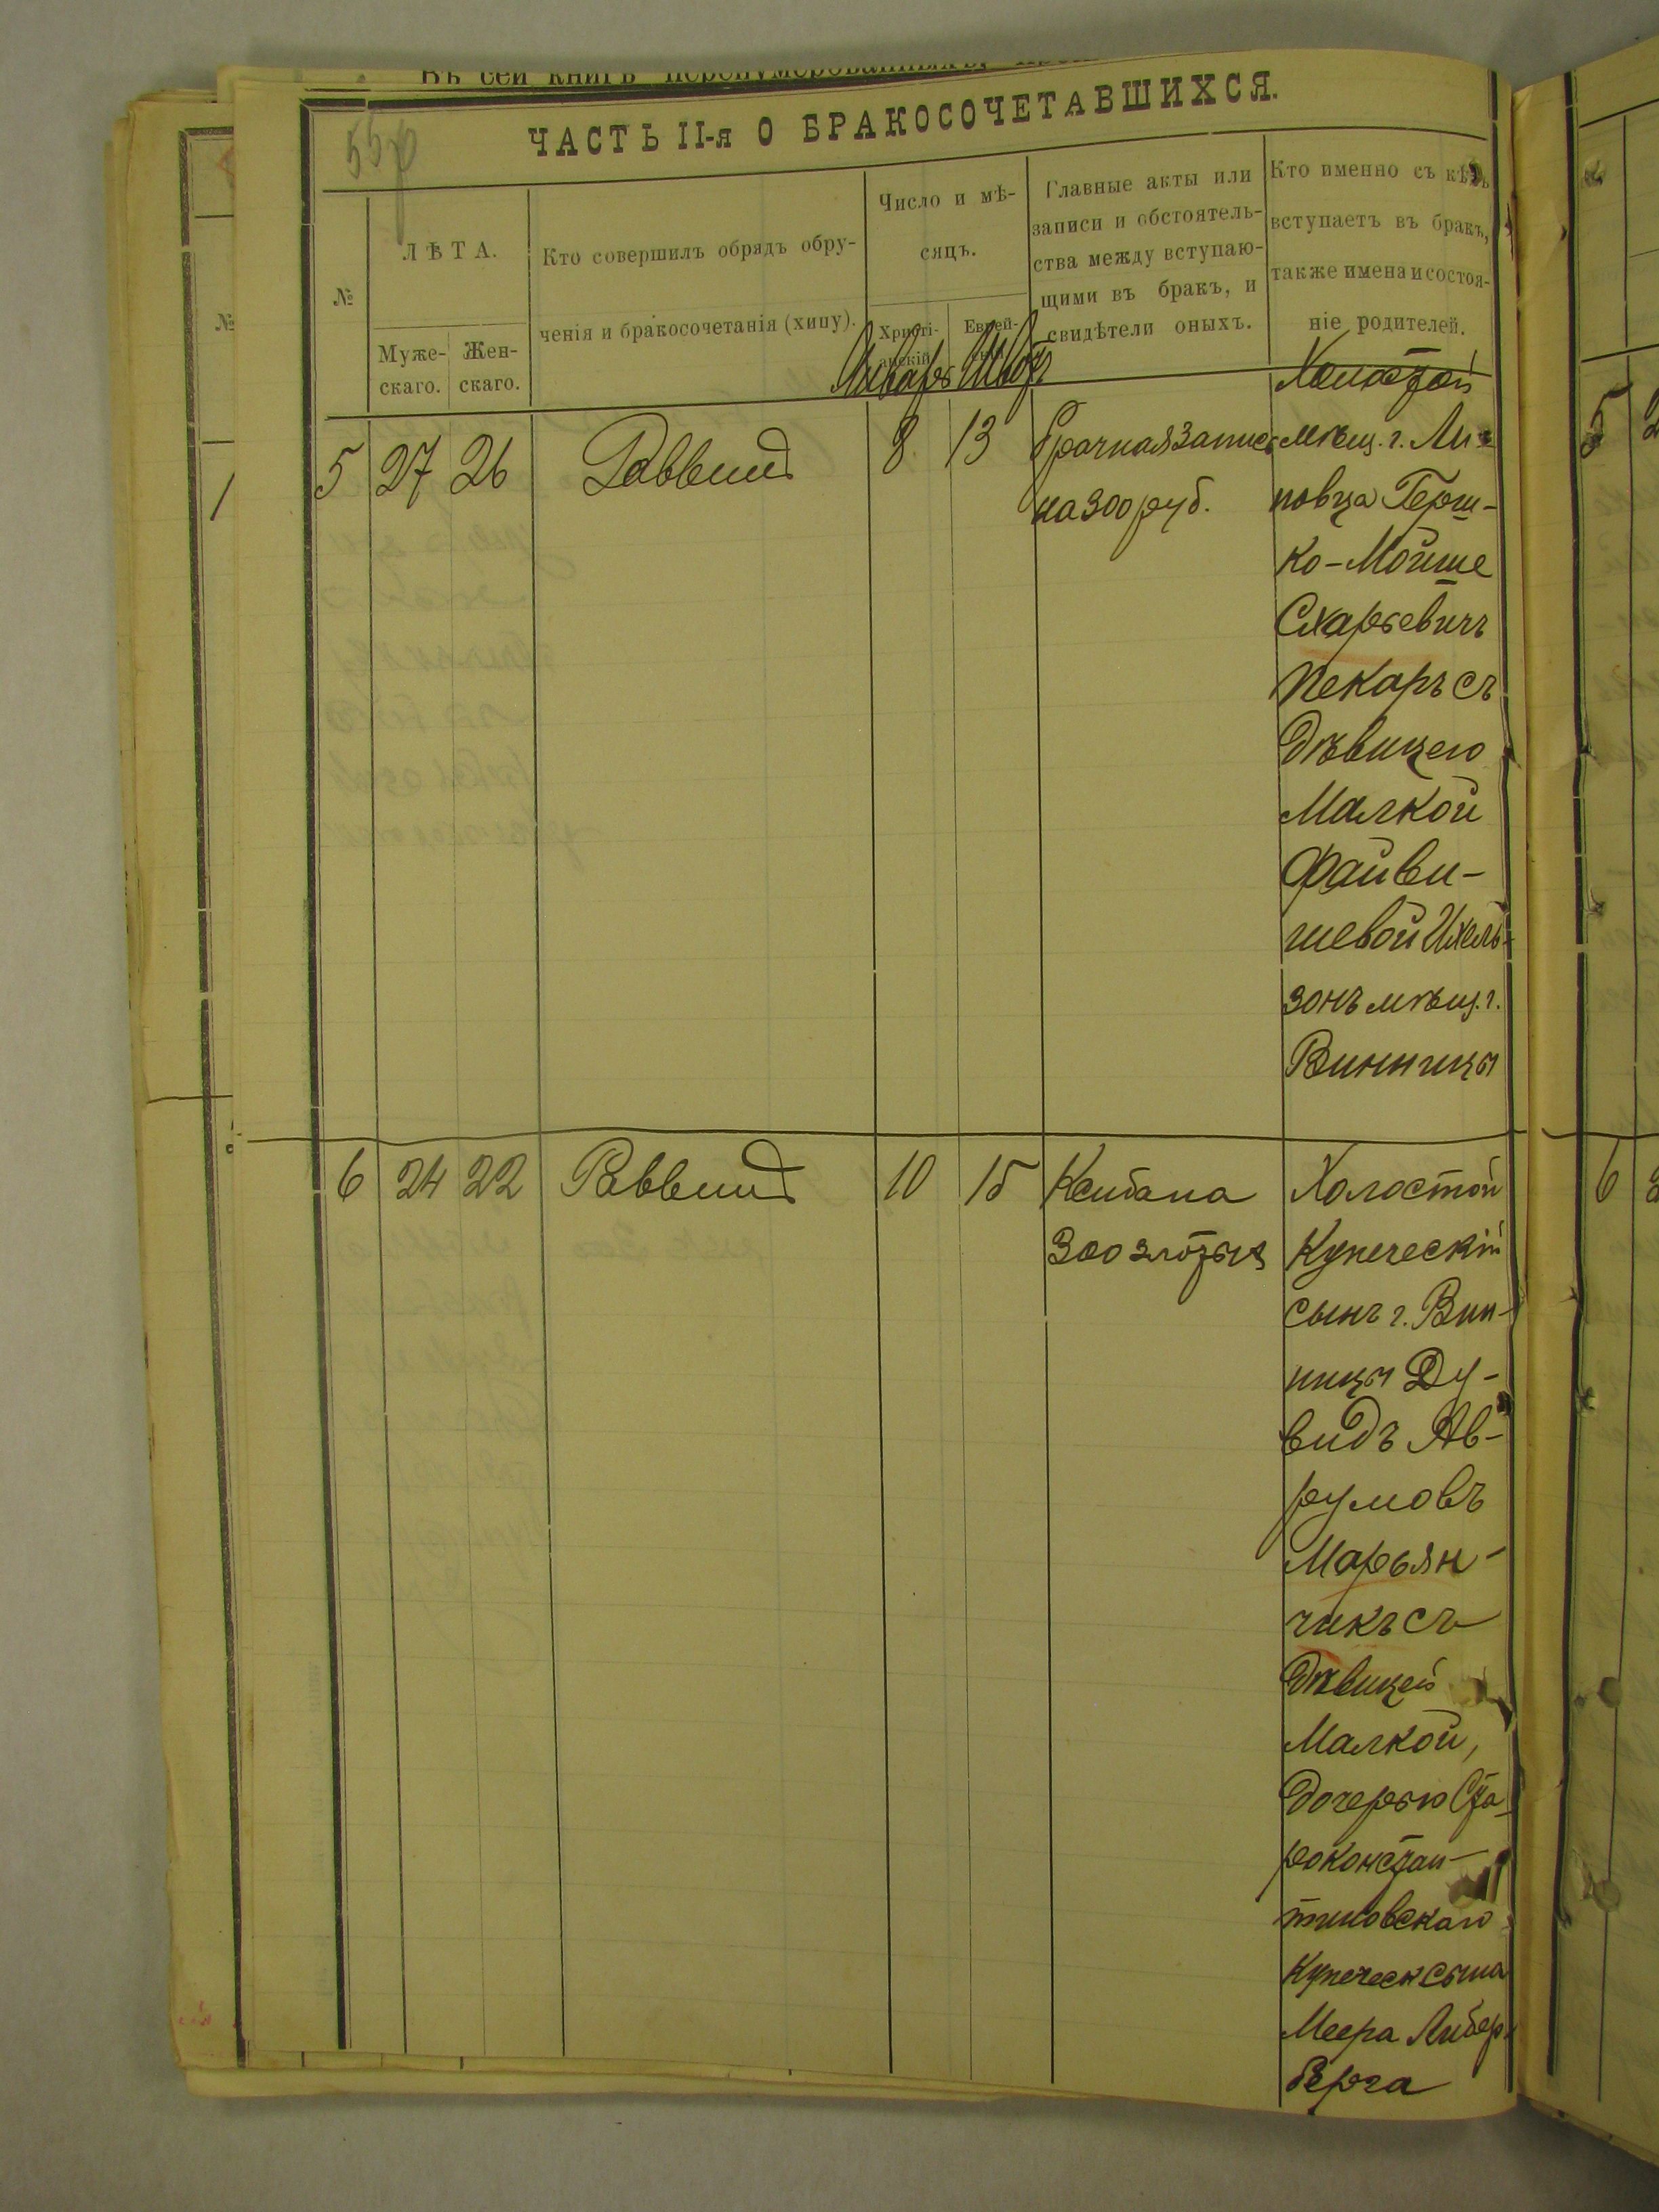 Въ сей книгѣ перенумерованныхъ,
ЧАСТЬ II-я О БРАКОСОЧЕТАВШИХСЯ.
№
ЛѢТА.
Муже-
скаго.
Жен-
скаго.
Кто совершилъ обрядъ обру-
ченія и бракосочетанія (хипу).
Число и мѣ-
сяцъ.
Христі-
анскій
Еврей-
Главные акты или
записи и обстоятель-
ства между вступаю-
щими въ бракъ, и
свидѣтели оныхъ.
Кто именно съ кѣмъ
вступаетъ въ бракъ,
также имена и состоя-
ніе родителей.
Январь Шватъ
5 27 26 Раввинъ 8 13
Брачная запись
на 300 руб.
Холостой
мѣщ. г. Ли-
повца Герш-
ко-Мойше
Схарьевичъ
Пекаръ съ
дѣвицею
Малкой
Файви-
шевой Ихель-
зонъ мѣщ. г.
Винницы
6 24 22 Раввинъ 10 15
Ксибапа
300 злотыхъ
Холостой
Купеческій
сынъ г. Вин-
ницы Ду-
видъ Ав-
румовъ
Марьян-
чикъ съ
дѣвицей
Малкой,
дочерью Ста-
роконстан-
тиновскаго
Купеческ сына
Меера Либер-
берга
№
1
5
6